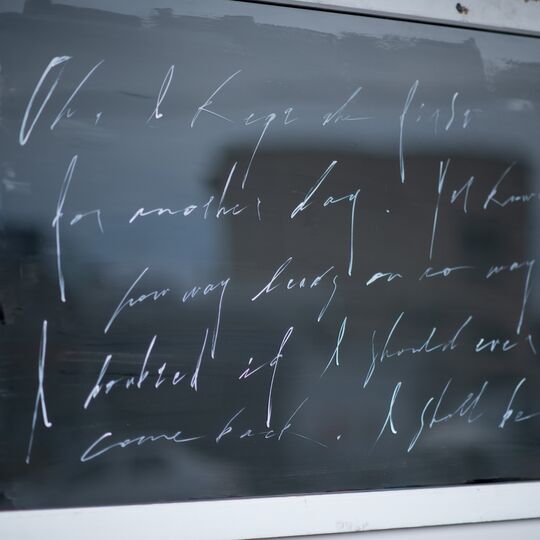 Oh, I kept the first
for another day. Yet know
how way leads on to way
I doubted if I should ever
come back. I shall be